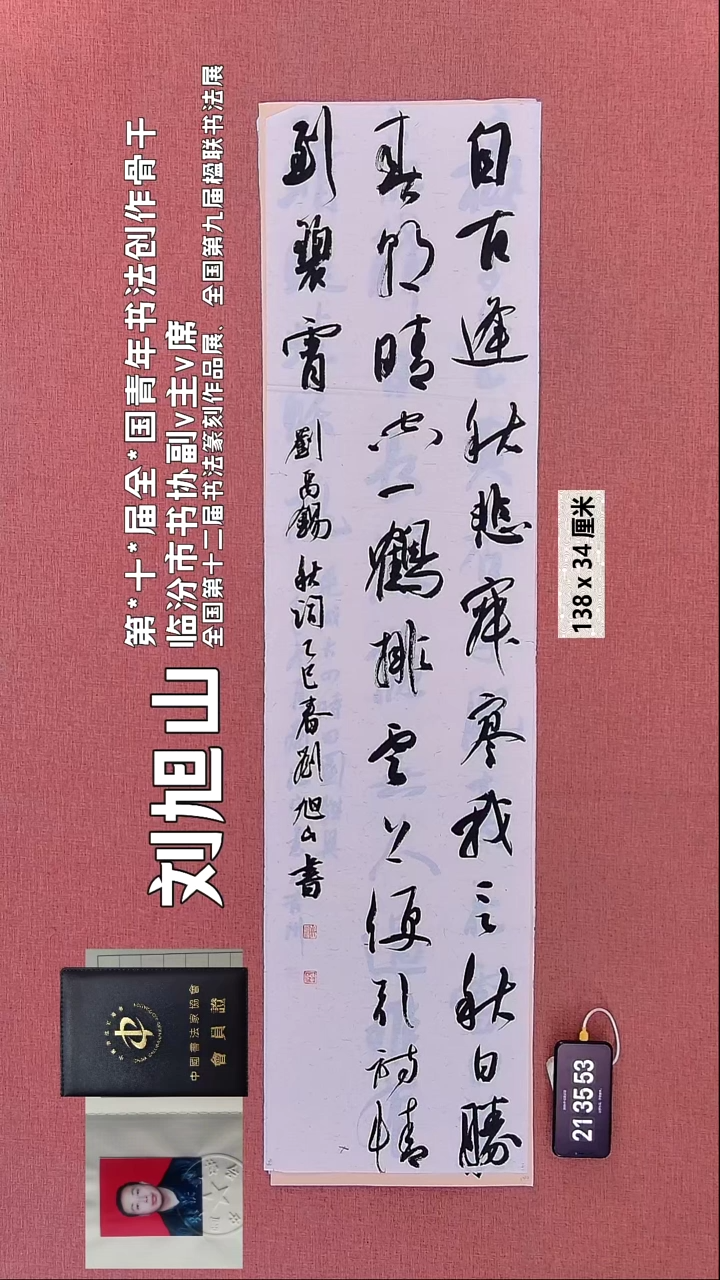 自古逢秋悲寂寥我言秋日勝
春朝晴空一鶴排雲上便引詩情
到碧霄 劉禹錫秋詞乙巳春劉旭山書
第*十*届全*国青年书法创作骨干
临汾市书协副v主v席
全国第十二届书法篆刻作品展、全国第九届楹联书法展
刘旭山
中國書法家協會
會員證
138 x 34 厘米
21 35 53